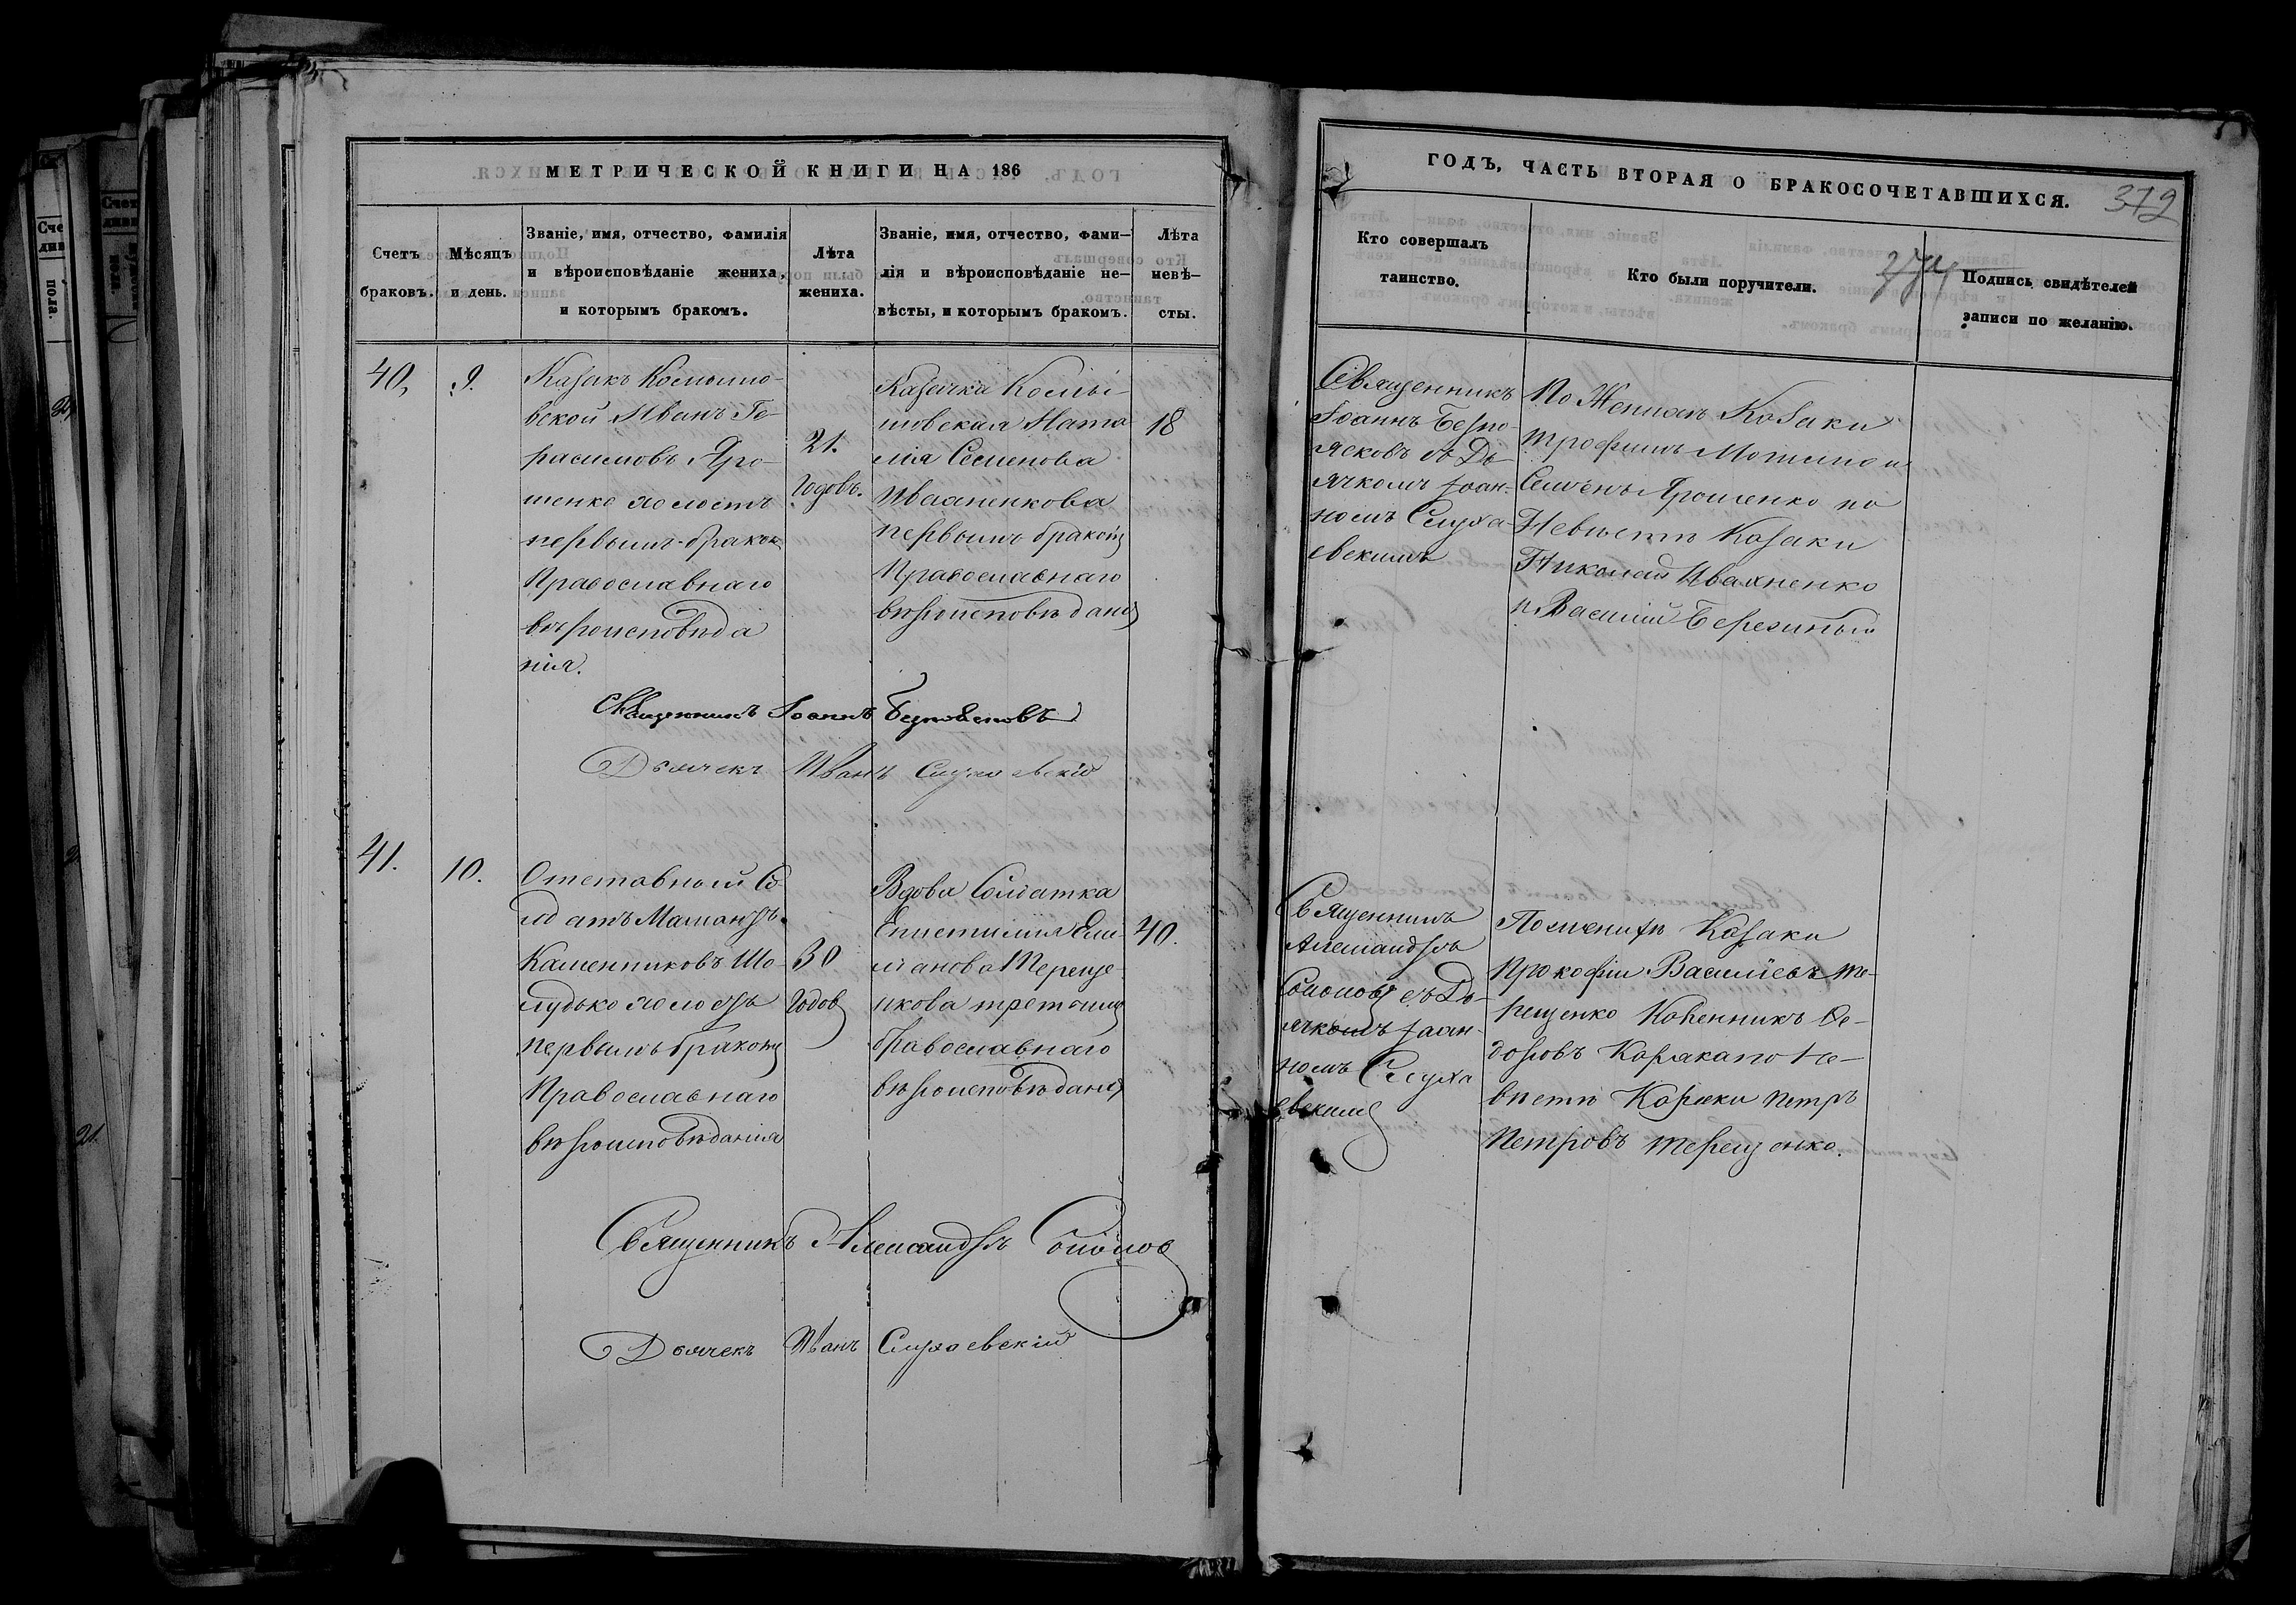 МЕТРИЧЕСКОЙ КНИГИ НА 186
Счетъ браковъ.
Мѣсяцъ и день.
Званіе, имя, отчество, фамилія
и вѣроисповѣданіе жениха,
и которымъ бракомъ.
Лѣта
жениха.
Званіе, имя, отчество, фами-
лія и вѣроисповѣданіе не-
вѣсты, и которымъ бракомъ.
Лѣта
невѣ-
сты.
40,
9.
Казакъ
вской Иванъ Ге-
расимовъ Яро-
шенко холостъ
первымъ браком
Православнаго
вѣроисповѣда
нія.
21.
Годовъ.
Казачка
Ната
лія Семенова
Ивахненкова
первымъ бракомъ
Православнаго
вѣроисповѣданія
18
Священникъ Іоаннъ Безпоясковъ
Дьячекъ Иванъ Слухаевскій
41.
10.
Отставной Со
лдатъ
Каменниковъ Ше-
лудько холостъ
первымъ бракомъ
Православнаго
вѣроисповѣданія
30
Годов
Вдова Солдатка
Емі
лianова Тереще
нкова третьимъ
Православнаго
вѣроисповѣданія
40.
Священникъ Александръ Сополов
Дьячекъ Иванъ Слухаевскій
ГОДЪ, ЧАСТЬ ВТОРАЯ О БРАКОСОЧЕТАВШИХСЯ.
372
Кто совершалъ
таинство.
Кто были поручители.
274
Подпись свидѣтелей
записи по желанію.
Священникъ
Іоаннъ Безпо-
ясковъ съ Дь-
ячкомъ Іоан-
номъ Слуха-
евскимъ
По Жениху Козаки
Трофимъ и
Семенъ Ярошенко по
Невѣстѣ Козаки
Николай Ивахненко
и Василій Березиный
Священникъ
Александръ
съ Дь-
ячкомъ Іоан-
номъ Слуха
евским
По жениху Казаки
Прокофій Васильевъ Те-
рещенко Ѳе-
доровъ по Не-
вѣстѣ Казаки Петръ
Петровъ Терещенко.